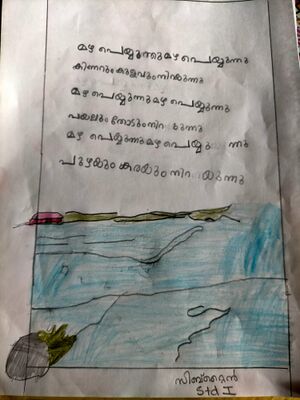 മഴ പെയ്യുന്നു മഴ പെയ്യുന്നു
കിണറും കുളവും നിറയുന്നു
മഴ പെയ്യുന്നു മഴ പെയ്യുന്നു
വയലും തോടും നിറയുന്നു
മഴ പെയ്യുന്നു മഴ പെയ്യുന്നു
പുഴയും കരയും നിറയുന്നു
Std I